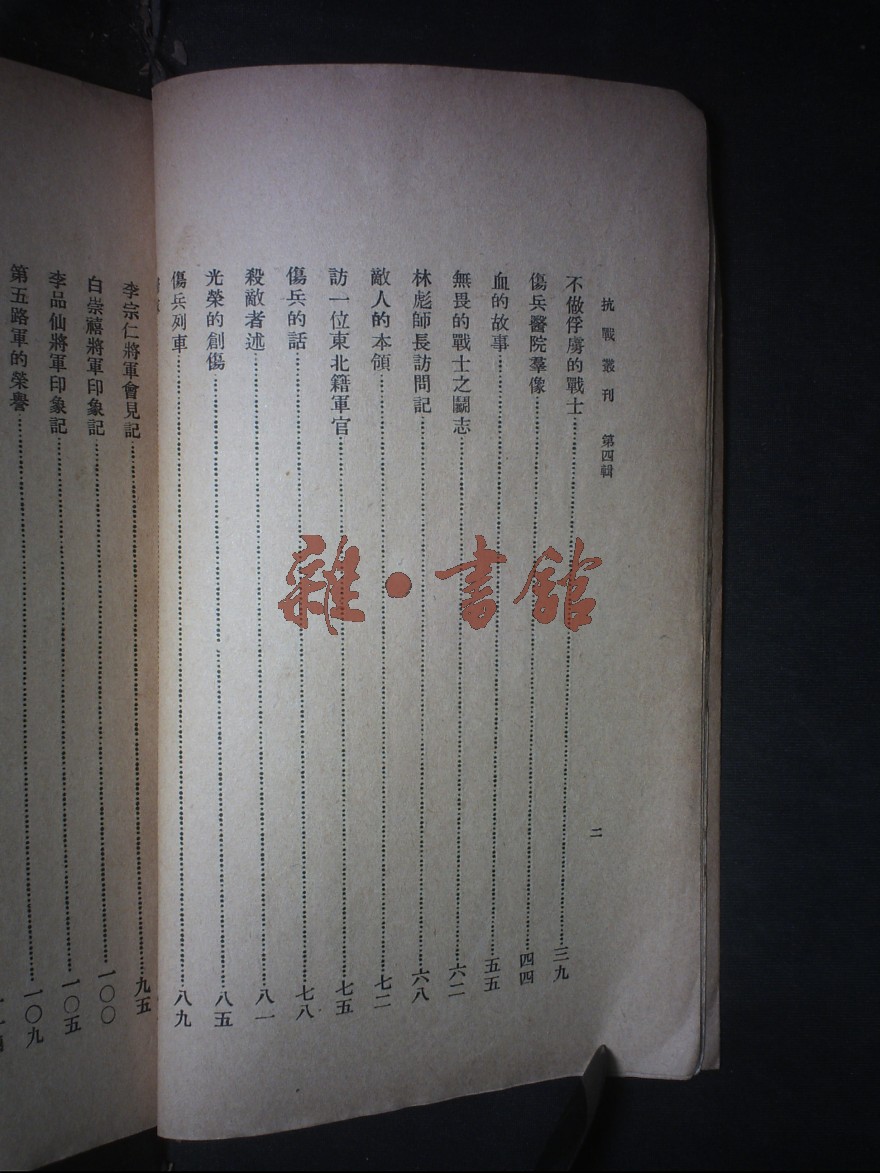 抗戰叢刊 第四輯
二
不做俘虜的戰士……三九
傷兵醫院羣像……四四
血的故事……五五
無畏的戰士之鬭志……六二
林彪師長訪問記……六八
敵人的本領……七二
訪一位東北籍軍官……七五
傷兵的話……七八
殺敵者述……八一
光榮的創傷……八五
傷兵列車……八九
李宗仁將軍會見記……九五
白崇禧將軍印象記……一〇〇
李品仙將軍印象記……一〇五
第五路軍的榮譽……一〇九
雜·書館